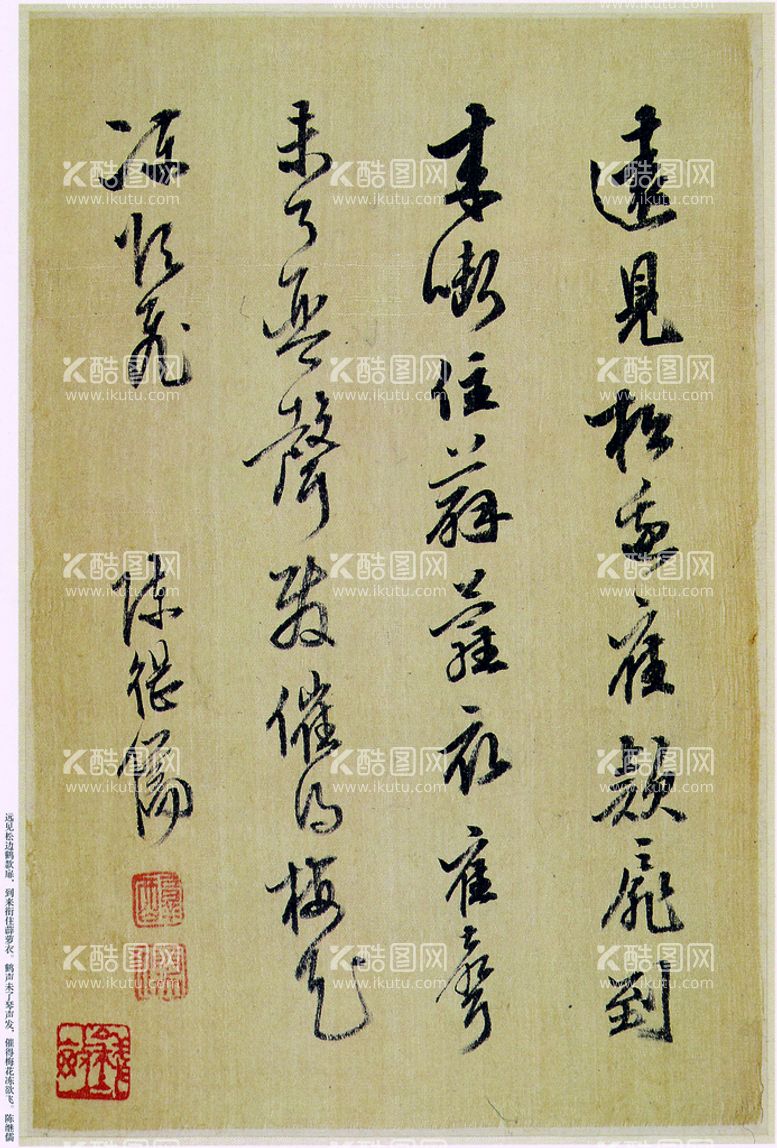 遠見松邊隺款扉到
来啣住薜蘿衣隺聲
未了琴聲發催得梅花
凍欲飛
陳繼儒
远见松边鹤款扉，到来衔住薜萝衣。鹤声未了琴声发，催得梅花冻欲飞。 陈继儒
酷图网
www.ikutu.com